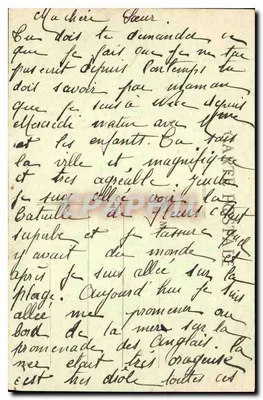 Ma chère Sœur.
Tu dois te demander ce
que je fais que je ne t'ai
pas ecrit depuis longtemps tu
dois savoir par maman
que je suis a Nice depuis
Mercredi matin avec Mme
et les enfants. Tu sais
la ville est magnifique
et tres agréable. Jeudi
je suis allée voir la
Bataille de fleurs c'était
superbe et je t'assure qu'il
y avait du monde et
après je suis allée sur la
plage. Aujourd'hui je suis
allée me promener au
bord de la mer sur la
promenade des Anglais. la
mer etait très orageuse
c'est tres drôle toutes ces
CARTE POSTALE